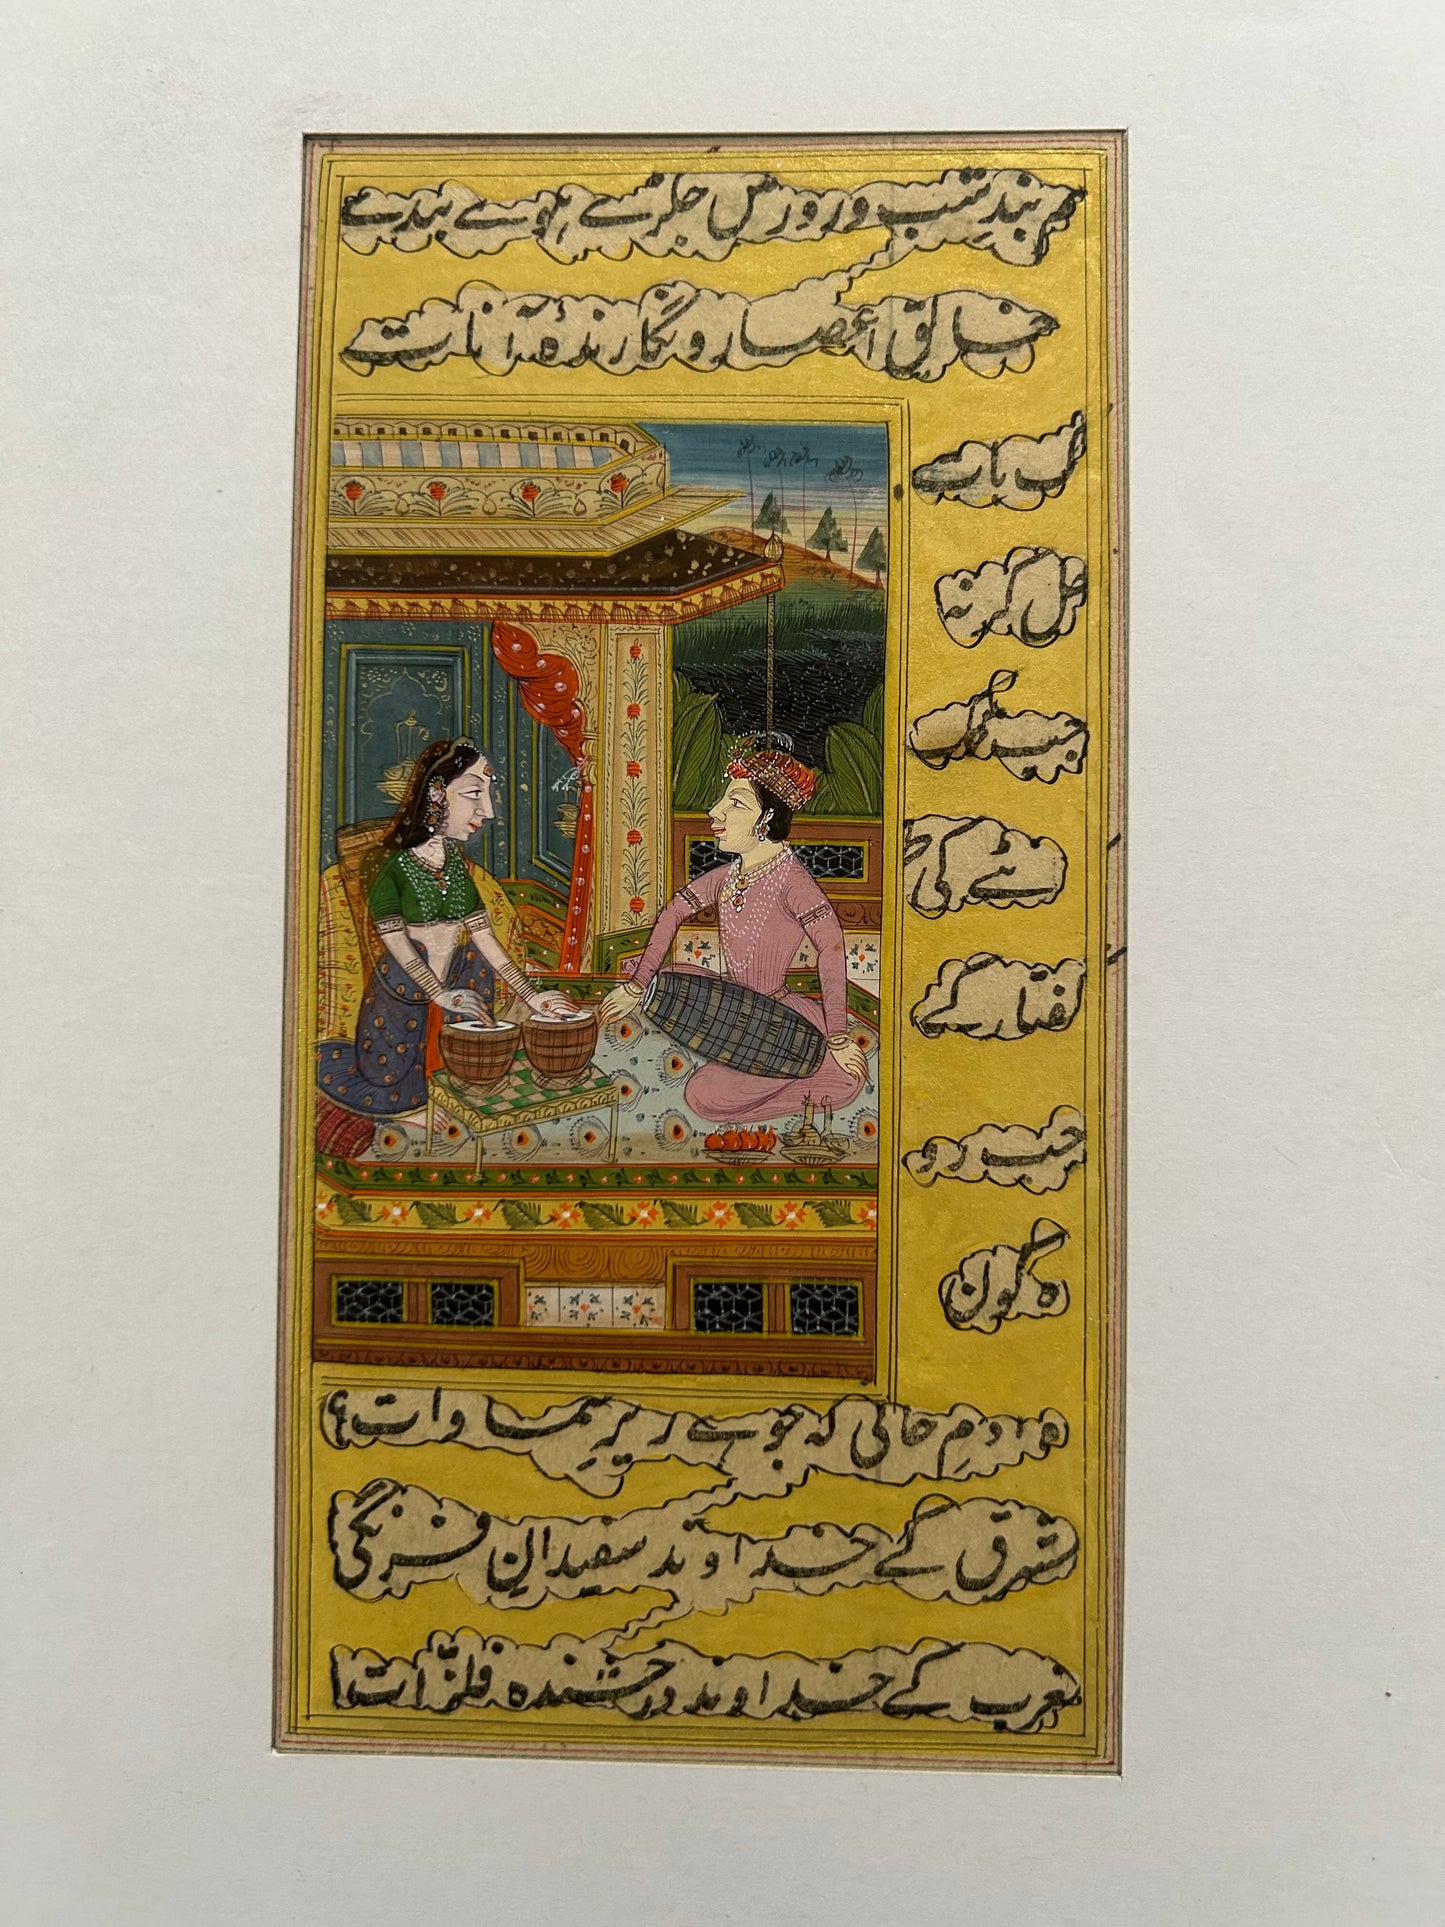 ہم بندِ شب و روز میں جکڑے ہوئے بندے
خالق اعصار و نگارندۂ آنات
ک بات
حل کر نہ
جب تک
نٹے کی
گفتار کے
جب رو
ہ کون
ہ آدمِ خاکی کہ جو ہے زیرِ سماوات؟
مشرق کے خداوند سفیدانِ فرنگی
مغرب کے خداوند درخشندہ فلزّات